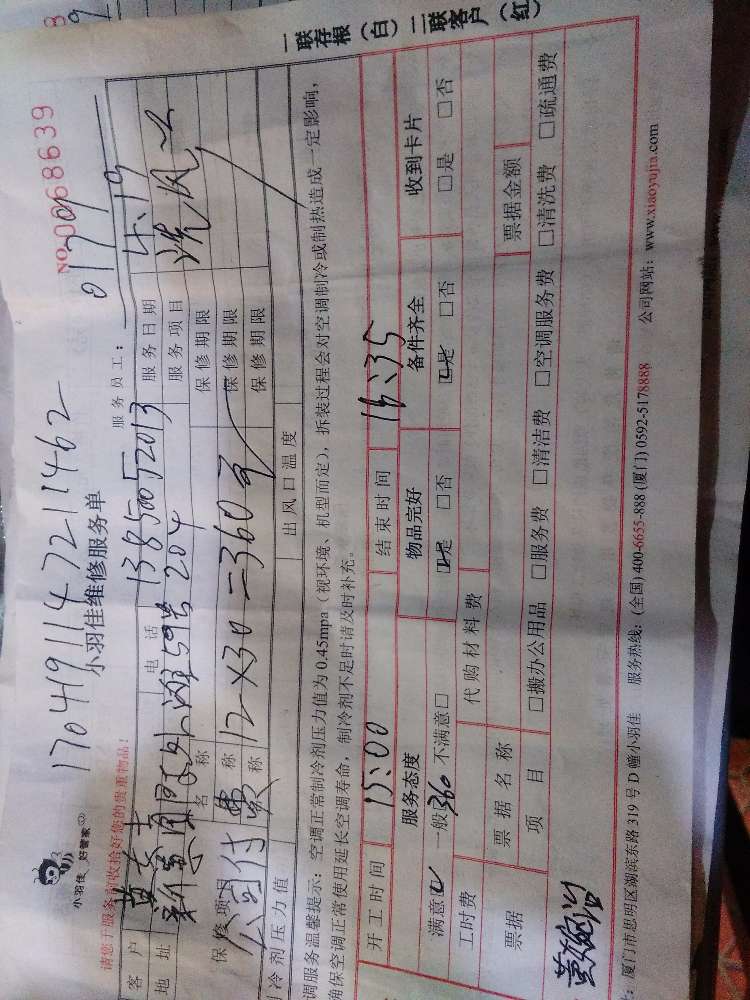 一联存根（白） 二联客户（红）
NO.0068639
1704191147211462
小羽佳 好管家
小羽佳维修服务单
服务员工： 01709
请您于服务前收拾好您的贵重物品！
客户 电话 13850052013 服务日期 4.19
地址 204 服务项目 洗风
名称 保修期限
保修项目 公司付费 称 12×30=360元 保修期限
称 保修期限
冷剂压力值 出风口温度
调服务温馨提示：空调正常制冷剂压力值为0.45mpa（视环境、机型而定），拆装过程会对空调制冷或制热造成一定影响，
确保空调正常使用延长空调寿命，制冷剂不足时请及时补充。
开工时间 15:00 结束时间 16:35
服务态度 物品完好 备件齐全 收到卡片
满意☑ 一般 不满意□ ☑是 □否 ☑是 □否 □是 □否
工时费 360 代购材料费
票据 票据名称 票据金额
项目 □搬办公用品 □服务费 □清洁费 □空调服务费 □清洗费 □疏通费
：厦门市思明区湖滨东路319号D幢小羽佳 服务热线：(全国) 400-6655-888 (厦门) 0592-5178888 公司网站：www.xiaoyujia.com